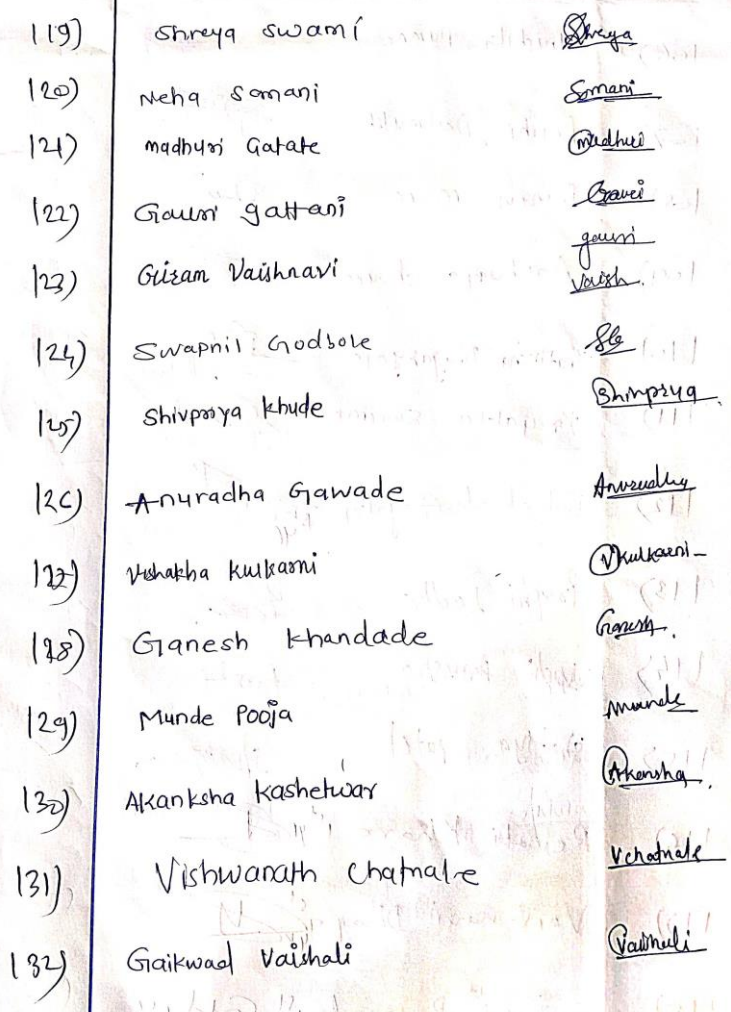 119) Shreya Swami Shreya
120) Neha Somani Somani
121) madhuri Gatate madhuri
122) Gauri gattani Gauri
gauri
123) Giram Vaishnavi Vaish.
124) Swapnil Godbole
125) Shivpriya Khude Shivpriya
126) Anuradha Gawade Anuradha
127) Vishakha Kulkarni VKulkarni
128) Ganesh Khandade Ganesh
129) Munde Pooja Munde
130) Akanksha Kashetwar Akansha
131) Vishwanath Chatnale Vchatnale
132) Gaikwad Vaishali Vaishali